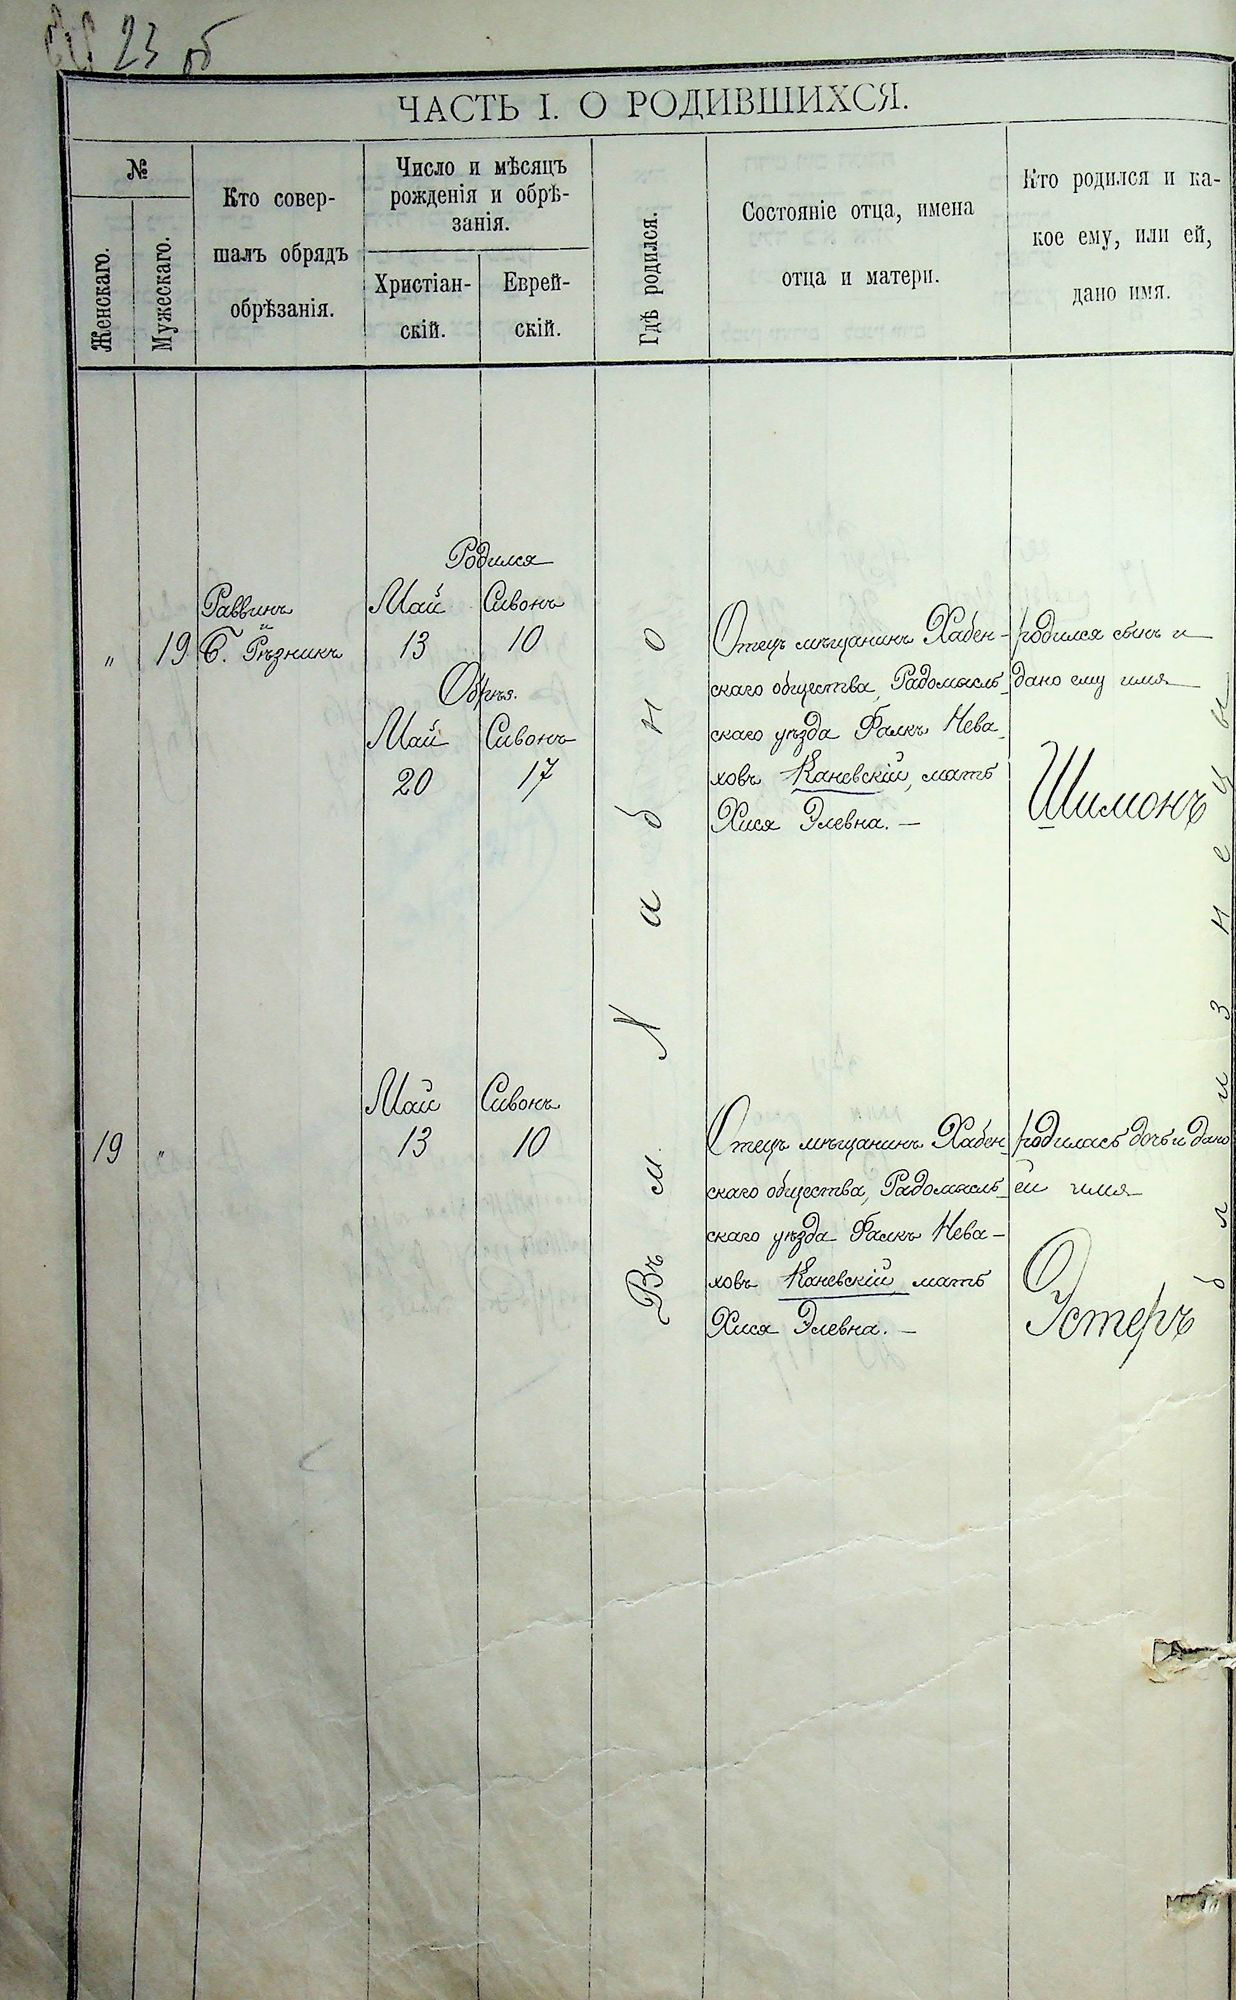 23 об
ЧАСТЬ I. О РОДИВШИХСЯ.
№
Женскаго.
Мужескаго.
Кто совер-
шалъ обрядъ
обрѣзанія.
Число и мѣсяцъ
рожденія и обрѣ-
занія.
Христіан-
скій.
Еврей-
скій.
Гдѣ родился.
Состояніе отца, имена
отца и матери.
Кто родился и ка-
кое ему, или ей,
дано имя.
"
19
Раввинъ
и
Б. Рѣзникъ
Родился
Май Сивонъ
13 10
Обрѣз.
Май Сивонъ
20 17
Въ м. Хабно
Отецъ мѣщанинъ Хабен-
скаго общества, Радомысль-
скаго уѣзда Фалкъ Нева-
ховъ Каневскій, мать
Хися Элевна. —
родился сынъ и
дано ему имя
Шимонъ
19
"
Май Сивонъ
13 10
Отецъ мѣщанинъ Хабен-
скаго общества, Радомысль-
скаго уѣзда Фалкъ Нева-
ховъ Каневскій, мать
Хися Элевна. —
родилась дочь и дано
ей имя
Эстеръ
близнецы